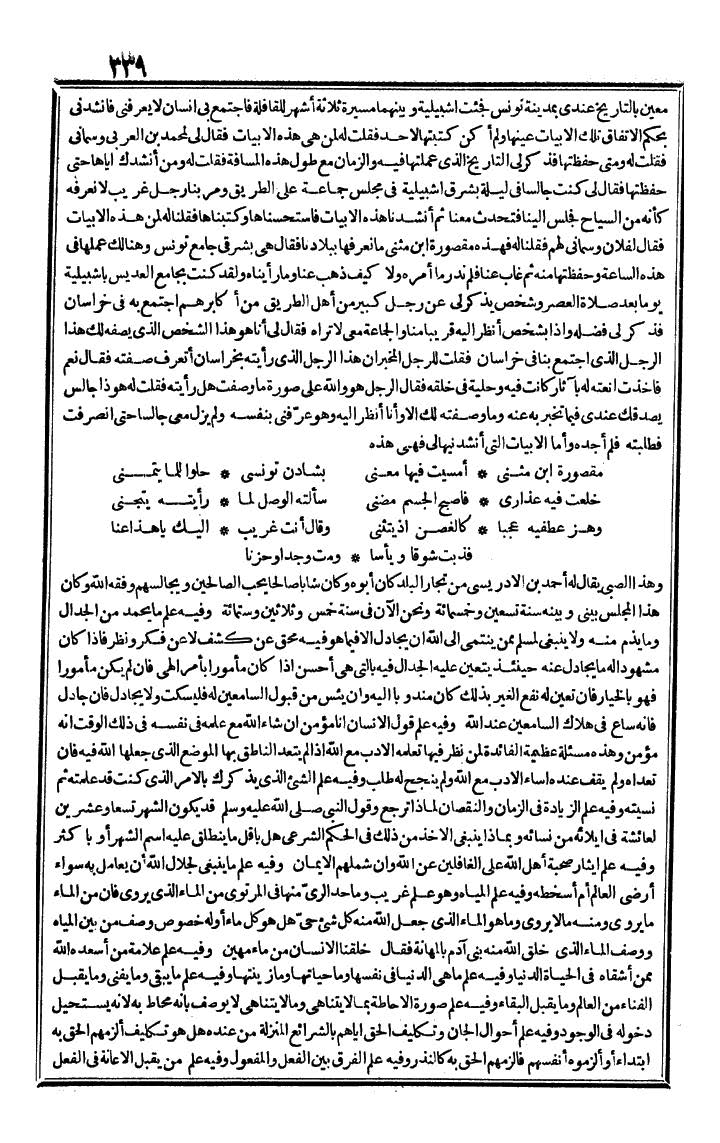 ٣٣٩
معين بالتاريخ عندى بمدينة تونس فجئت اشبيلية وبينهما مسيرة ثلاثة أشهر للقافلة فاجتمع بى انسان لا يعرفنى فانشدنى
بحكم الاتفاق تلك الابيات عينها ولم أكن كتبتها لاحد فقلت له لمن هى هذه الابيات فقال لى لمحمد بن العربى وسمانى
فقلت له ومتى حفظتها فذكر لى التاريخ الذى عملتها فيه والزمان مع طول هذه المسافة فقلت له ومن أنشدك اياها حتى
حفظتها فقال لى كنت جالسا فى ليلة بشرق اشبيلية فى مجلس جماعة على الطريق ومر بنا رجل غريب لا نعرفه
كأنه من السياح فجلس الينا فتحدث معنا ثم أنشدنا هذه الابيات فاستحسناها وكتبناها فقلنا له لمن هذه الابيات
فقال لفلان وسمانى لهم فقلنا له فهذه مقصورة ابن مثنى ما نعرفها ببلادنا فقال هى بشرقى جامع تونس وهنالك عملها فى
هذه الساعة وحفظتها منه ثم غاب عنا فلم ندر ما أمره ولا كيف ذهب عنا وما رأيناه ولقد كنت بجامع العديس باشبيلية
يوما بعد صلاة العصر وشخص يذكر لى عن رجل كبير من أهل الطريق من أكابرهم اجتمع به فى خراسان
فذكر لى فضله واذا بشخص أنظر اليه قريبا منا والجاعة معى لا تراه فقال لى أنا هو هذا الشخص الذى يصفه لك هذا
الرجل الذى اجتمع بنا فى خراسان فقلت للرجل المخبر ان هذا الرجل الذى رأيته بخراسان أتعرف صفته فقال نعم
فاخذت انعته له بآثار كانت فيه وحلية فى خلقه فقال الرجل هو والله على صورة ما وصفت هل رأيته فقلت له هو ذا جالس
يصدقك عندى فيما تخبر به عنه وما وصفته لك الا وأنا أنظر اليه وهو عرّفنى بنفسه ولم يزل معى جالسا حتى انصرفت
فطلبته فلم أجده وأما الابيات التى أنشدنيها لى فهى هذه
مقصورة ابن مثنى * أمسيت فيها معنى بشادن تونسى * حلوا للما يتمنى
خلعت فيه عذارى * فاصبح الجسم مضنى سألته الوصل لما * رأيته يتجنى
وهز عطفيه عجبا * كالغصن اذ يتثنى وقال أنت غريب * اليك يا هذا عنا
فذبت شوقا ويأسا * ومت وجدا وحزنا
وهذا الصبى يقال له أحمد بن الادريسى من تجار البلد كان أبوه وكان شابا صالحا يحب الصالحين ويجالسهم وفقه الله وكان
هذا المجلس بينى وبينه سنة تسعين وخمسمائة ونحن الآن فى سنة خمس وثلاثين وستمائة وفيه علم ما يحمد من الجدال
وما يذم منه ولا ينبغى لمسلم ممن ينتمى الى الله ان يجادل الا فيما هو فيه محق عن كشف لا عن فكر ونظر فاذا كان
مشهودا له ما يجادل عنه حينئذ يتعين عليه الجدال فيه بالتى هى أحسن اذا كان مأمورا بأمر الهى فان لم يكن مأمورا
فهو بالخيار فان تعين له نفع الغير بذلك كان مندوبا اليه وان يئس من قبول السامعين له فليسكت ولا يجادل فان جادل
فانه ساع فى هلاك السامعين عند الله وفيه علم قول الانسان انا مؤمن ان شاء الله مع علمه فى نفسه فى ذلك الوقت انه
مؤمن وهذه مسئلة عظيمة الفائدة لمن نظر فيها تعلمه الادب مع الله اذا لم يتعد الناطق بها الموضع الذى جعلها الله فيه فان
تعداه ولم يقف عنده اساء الادب مع الله ولم ينجح له طلب وفيه علم الشئ الذى يذكرك بالامر الذى كنت قد علمته ثم
نسيته وفيه علم الزيادة فى الزمان والنقصان لماذا ترجع وقول النبى صلى الله عليه وسلم قد يكون الشهر تسعا وعشرين
لعائشة فى ايلائه من نسائه وبماذا ينبغى الاخذ من ذلك فى الحكم الشرعى هل باقل ما ينطلق عليه اسم الشهر أو باكثر
وفيه علم ايثار صحبة أهل الله على الغافلين عن الله وان شملهم الايمان وفيه علم ما ينبغى لجلال الله أن يعامل به سواء
أرضى العالم أم أسخطه وفيه علم المياه وهو علم غريب وما حد الرىّ منها فى المرتوى من الماء الذى يروى فان من الماء
ما يروى ومنه ما لا يروى وما هو الماء الذى جعل الله منه كل شئ حىّ هل هو كل ماء أو له خصوص وصف من بين المياه
ووصف الماء الذى خلق الله منه بنى آدم بالمهانة فقال خلقنا الانسان من ماء مهين وفيه علم علامة من أسعده الله
ممن أشقاه فى الحياة الدنيا وفيه علم ما هى الدنيا فى نفسها وما حياتها وما زينتها وفيه علم ما يبقى وما يفنى وما يقبل
الفناء من العالم وما يقبل البقاء وفيه علم صورة الاحاطة بما لا يتناهى وما لا يتناهى لا يوصف بانه محاط به لانه يستحيل
دخوله فى الوجود وفيه علم أحوال الجان وتكليف الحق اياهم بالشرائع المنزلة من عنده هل هو تكليف ألزمهم الحق به
ابتداء أو ألزموه أنفسهم فالزمهم الحق به كالنذر وفيه علم الفرق بين الفعل والمفعول وفيه علم من يقبل الاعانة فى الفعل